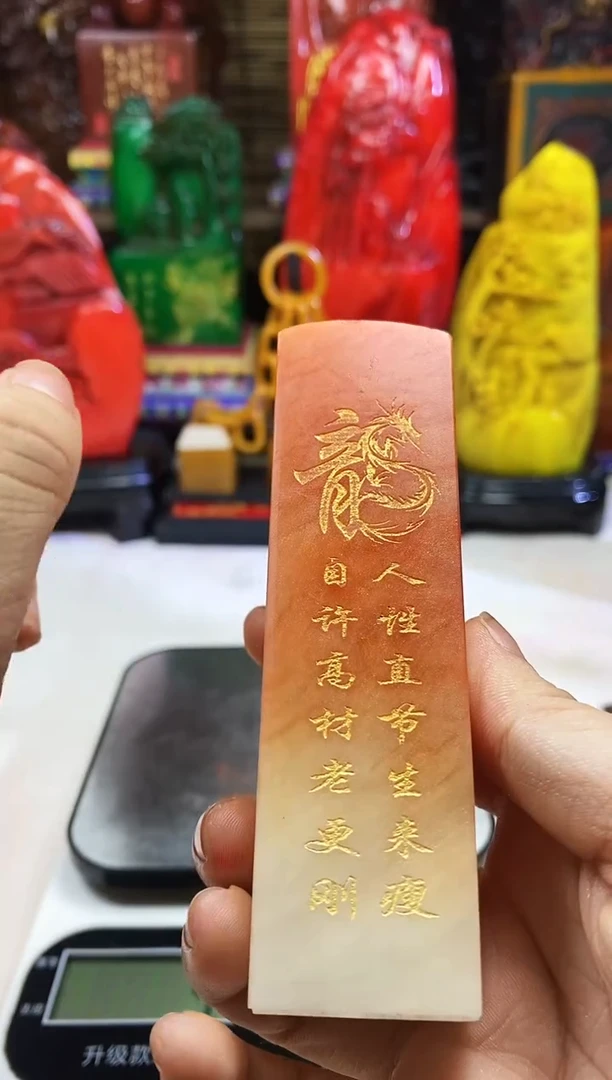 龍
人性直节生来瘦
自许高材老更刚
升级款